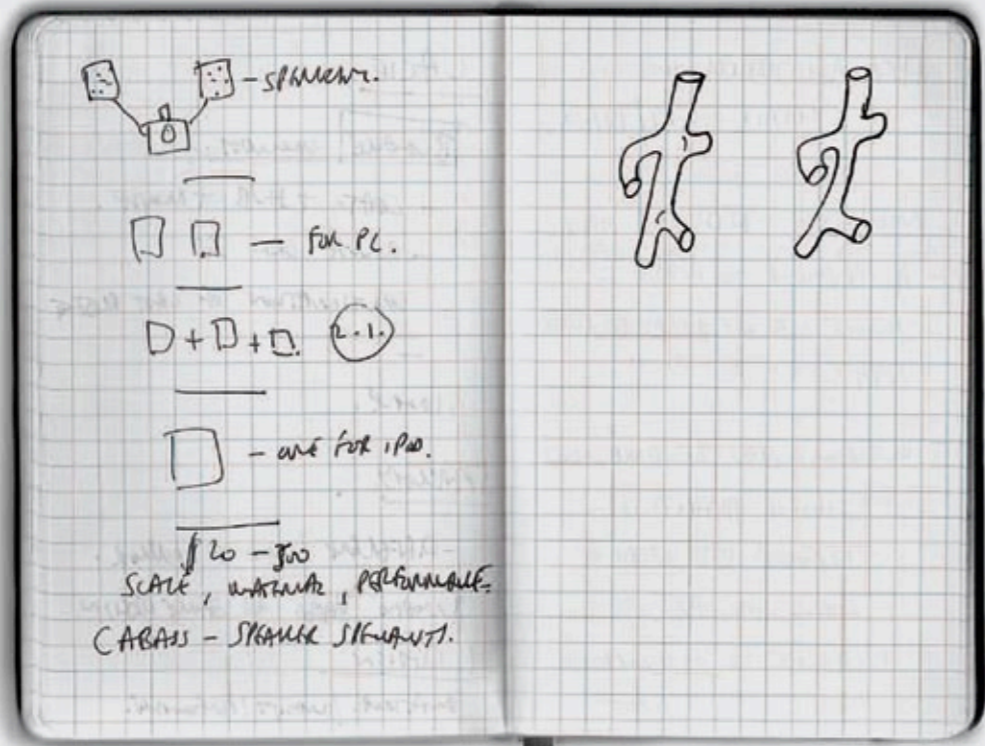 - SPEAKERS.
- FOR PC.
+ + 2.1.
- ONE FOR iPOD.
20 - 500
SCALE, MATERIAL, PERFORMANCE.
CABASS - SPEAKER